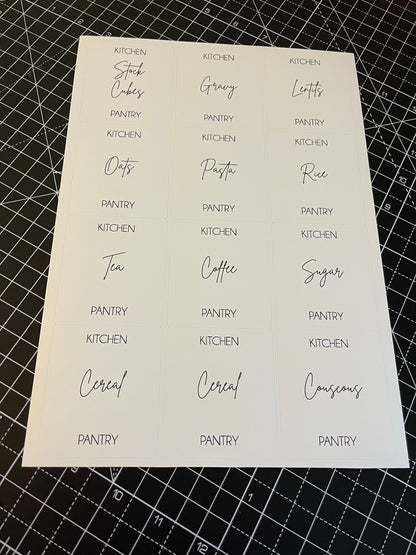 KITCHEN KITCHEN KITCHEN
Stock
Cubes Gravy Lentils
PANTRY PANTRY PANTRY
KITCHEN KITCHEN KITCHEN
Oats Pasta Rice
PANTRY PANTRY PANTRY
KITCHEN KITCHEN KITCHEN
Tea Coffee Sugar
PANTRY PANTRY PANTRY
KITCHEN KITCHEN KITCHEN
Cereal Cereal Couscous
PANTRY PANTRY PANTRY
10 11 12 1